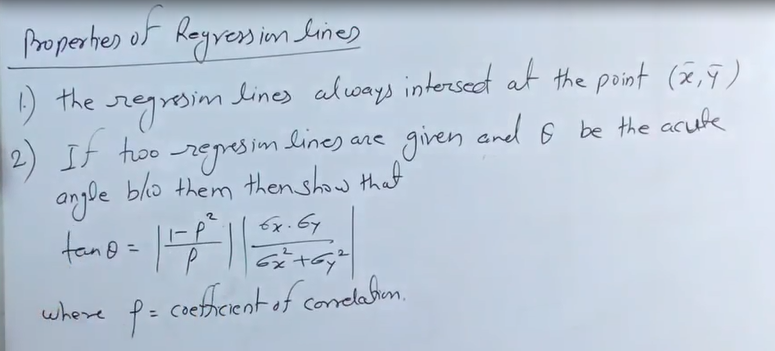 Properties of Regression lines
1.) the regresion lines always intersect at the point (x̄, ȳ)
2) If two regresion lines are given and θ be the acute
angle b/w them then show that
tan θ = |(1-ρ²)/ρ| |(σx·σy)/(σx²+σy²)|
where ρ = coefficient of correlation.